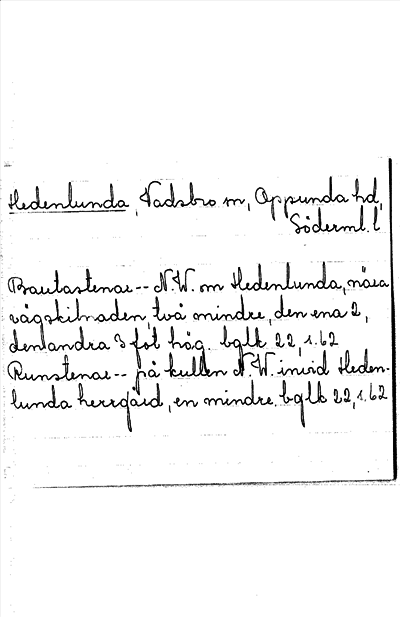 Hedenlunda, Vadsbro sn, Oppunda hd,
Söderml. l
Bautastenar -- N.W. om Hedenlunda, nära
vägskilnaden, två mindre, den ena 2,
den andra 3 fot hög. bglb 22, s. 62
Runstenar -- på kullen N.W. invid Heden-
lunda herrgård, en mindre. bglb 22, s. 62